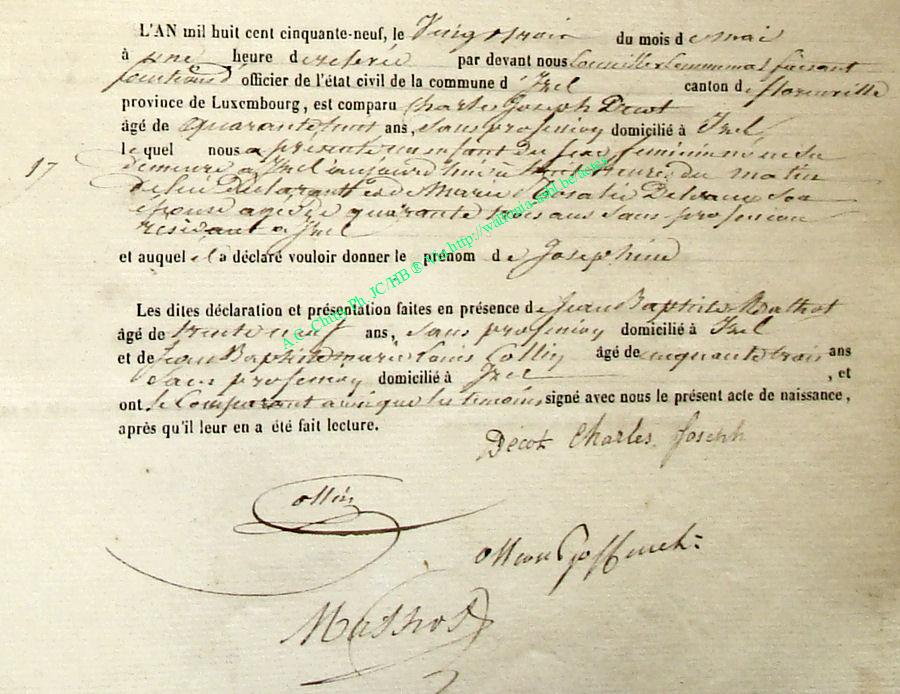 L'AN mil huit cent cinquante-neuf, le Vingt trois du mois de mai
à une heure de relevée par devant nous Conseiller Communal faisant
fonctions officier de l'état civil de la commune d'Izel canton de florenville
province de Luxembourg, est comparu Charles Joseph Décot
âgé de quarante huit ans, sans profession domicilié à Izel,
17 lequel nous a présenté un enfant du sexe féminin né en sa
demeure à Izel aujourd'hui à heures du matin
de lui déclarant et de Marie Rosalie son
épouse agée de quarante trois ans sans profession
résidant a Izel
et auquel il a déclaré vouloir donner le prénom de Joséphine
Les dites déclaration et présentation faites en présence de Jean Baptiste Mathot
âgé de trente neuf ans, sans profession domicilié à Izel
et de Jean Baptiste marie Louis Collin âgé de cinquante trois ans
sans profession domicilié à Izel , et
ont le Comparant ainsi que les témoins signé avec nous le présent acte de naissance,
après qu'il leur en a été fait lecture.
Décot Charles Joseph
Collin
Mathot
A.G. Chiny Ph. JC/HB ® Ast http://wallonia-asbl.be/actes